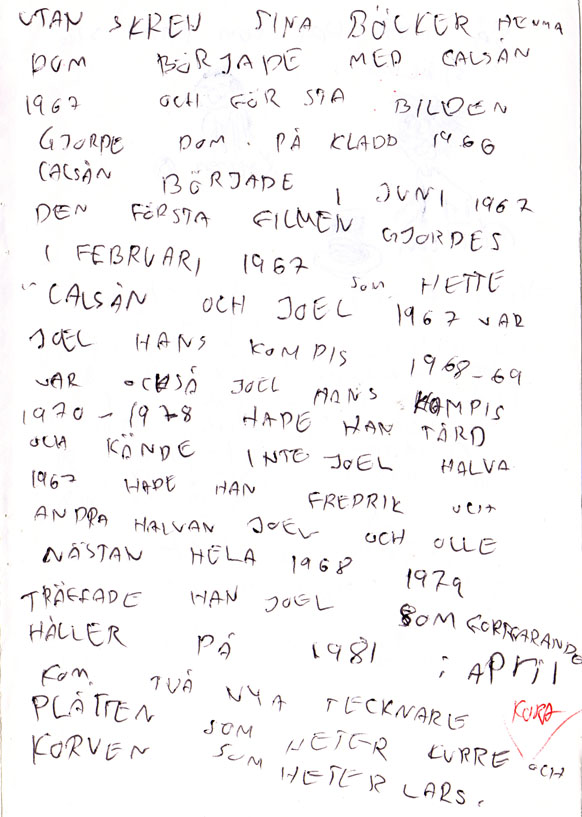 UTAN SKREV SINA BÖCKER HEMMA
DOM BÖRJADE MED CALSÅN
1967 OCH FÖRSTA BILDEN
GJORDE DOM. PÅ KLADD 1966
CALSÅN BÖRJADE I JUNI 1967
DEN FÖRSTA FILMEN GJORDES
I FEBRUARI 1967 SOM HETTE
"CALSÅN OCH JOEL 1967 VAR
JOEL HANS KOMPIS 1968-69
VAR OCKSÅ JOEL HANS KOMPIS
1970-1978 HADE HAN TÅRD
OCH KÄNDE INTE JOEL HALVA
1967 HADE HAN FREDRIK OCH
ANDRA HALVAN JOEL OCH OLLE
NÄSTAN HELA 1968 1979
TRÄFFADE HAN JOEL SOM FORTFARANDE
HÅLLER PÅ 1981 i APRIL
KOM. TVÅ NYA TECKNARE KURRA
PLÅTTEN SOM HETER KURRE OCH
KORVEN SOM HETER LARS.